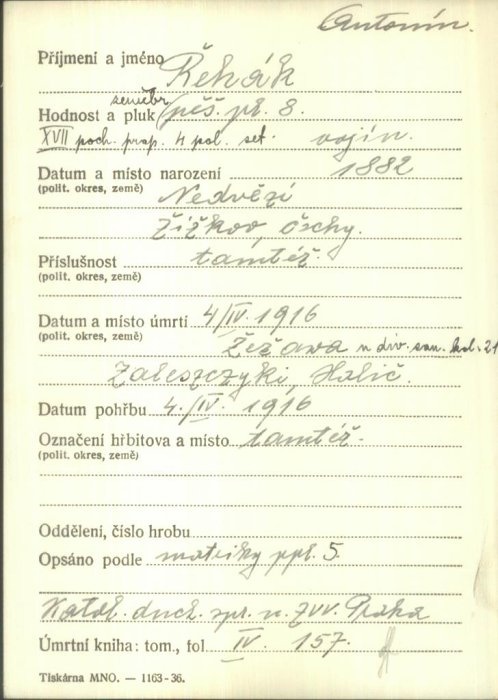 Antonín.
Příjmení a jméno Řehák
zeměbr.
Hodnost a pluk pěš. pl. 8.
XVII poch. prap. 4 pol. set. vojín.
Datum a místo narození 1882
(polit. okres, země) Nedvězí
Žižkov, Čechy.
Příslušnost tamtéž.
(polit. okres, země)
Datum a místo úmrtí 4/IV. 1916
(polit. okres, země) Žežawa u div. san. kol. 21
Zaleszczyki, Halič.
Datum pohřbu 4./IV. 1916
Označení hřbitova a místo tamtéž.
(polit. okres, země)
Oddělení, číslo hrobu
Opsáno podle matriky ppl. 5.
Katol. duch. spr. u ZVV. Praha
Úmrtní kniha: tom., fol IV. 157.
Tiskárna MNO. — 1163-36.